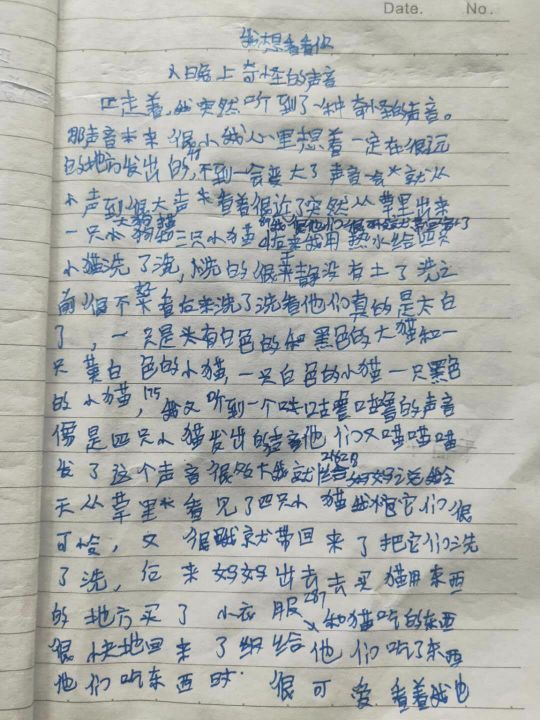 Date.  No.
我想看看你
晚上奇怪的声音
走着,我突然听到了一种奇怪的声音。
那声音本来很小我心里想着一定在很远
的地方发出的,不到一会变大了声音一会就从
小声到很大声来看着很近了突然从草里出来
一只大猫三只小猫 后来我用热水给四只
小猫洗了洗,洗的很干静没有土了洗之
前很不好看后来洗了洗看他们真的是太白
了,一只是头有白色的和黑色的大猫和一
只黄白色的小猫,一只白色的小猫一只黑色
的小猫,175我又听到一个咕噜咕噜的声音
是四只小猫发出的声音他们又喵喵喵
发了这个声音很大我就给妈妈说
天从草里看见了四只小猫我想它们很
可怜,又很饿就带回来了把它们洗
了洗,后来妈妈出去去买猫用东西
的地方买了小衣服287和猫吃的东西
很快地回来了给他们吃了东西
他们吃东西时很可爱看着我也